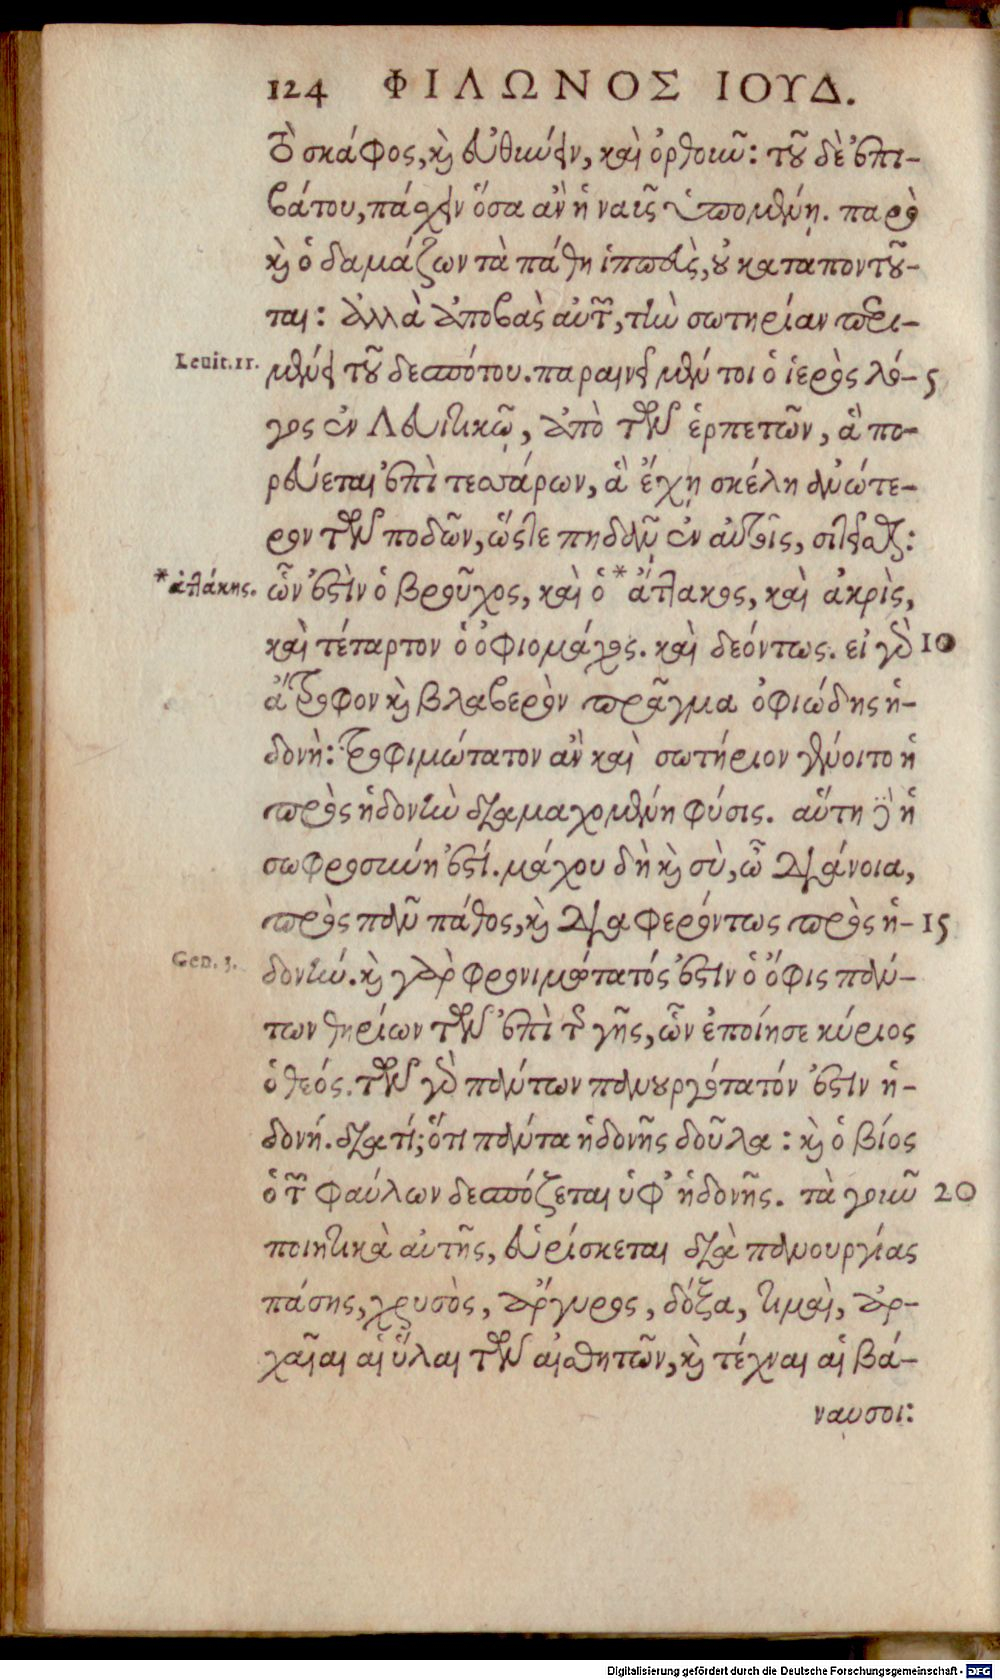 124 ΦΙΛΩΝΟΣ ΙΟΥΔ.
τὸ σκάφος, καὶ εὐθύνειν, καὶ ὀρθοῦν: τοῦ δὲ ἐπι-
βάτου, πάσχειν ὅσα ἂν ἡ ναῦς ὑπομένῃ. παρὸ
καὶ ὁ δαμάζων τὰ πάθη ἱππεὺς, οὐ καταποντοῦ-
ται: ἀλλὰ ἀποβὰς αὐτῶν, τὴν σωτηρίαν περι-
Leuit.11. μένει τοῦ δεσπότου. παραινεῖ μέν τοι ὁ ἱερὸς λό- 5
γος ἐν Λευιτικῷ, ἀπὸ τῶν ἑρπετῶν, ἃ πο-
ρεύεται ἐπὶ τεσσάρων, ἃ ἔχῃ σκέλη ἀνώτε-
ρον τῶν ποδῶν, ὥστε πηδᾶν ἐν αὐτοῖς, σιτεῖσθαι:
*ἀτάκης. ὧν ἐστὶν ὁ βροῦχος, καὶ ὁ *ἄτλακος, καὶ ἀκρὶς,
καὶ τέταρτον ὁ ὀφιομάχος. καὶ δεόντως. εἰ γὰρ 10
ἄτροφον καὶ βλαβερὸν πρᾶγμα ὀφιώδης ἡ-
δονὴ: τροφιμώτατον ἂν καὶ σωτήριον γένοιτο ἡ
πρὸς ἡδονὴν διαμαχομένη φύσις. αὕτη δὲ ἡ
σωφροσύνη ἐστί. μάχου δὴ καὶ σὺ, ὦ διάνοια,
πρὸς πᾶν πάθος, καὶ διαφερόντως πρὸς ἡ- 15
Gen.3. δονήν. καὶ γὰρ φρονιμώτατός ἐστιν ὁ ὄφις πάν-
των θηρίων τῶν ἐπὶ τῆς γῆς, ὧν ἐποίησε κύριος
ὁ θεός. τῶν γὰρ πάντων πανουργότατόν ἐστιν ἡ-
δονή. διατί; ὅτι πάντα ἡδονῆς δοῦλα: καὶ ὁ βίος
ὁ τῶν φαύλων δεσπόζεται ὑφ' ἡδονῆς. τὰ γοῦν 20
ποιητικὰ αὐτῆς, εὑρίσκεται διὰ πανουργίας
πάσης, χρυσὸς, ἄργυρος, δόξα, τιμαὶ, ἀρ-
χαῖαι αἱ ὕλαι τῶν αἰσθητῶν, καὶ τέχναι αἱ βά-
ναυσοι:
Digitalisierung gefördert durch die Deutsche Forschungsgemeinschaft - DFG